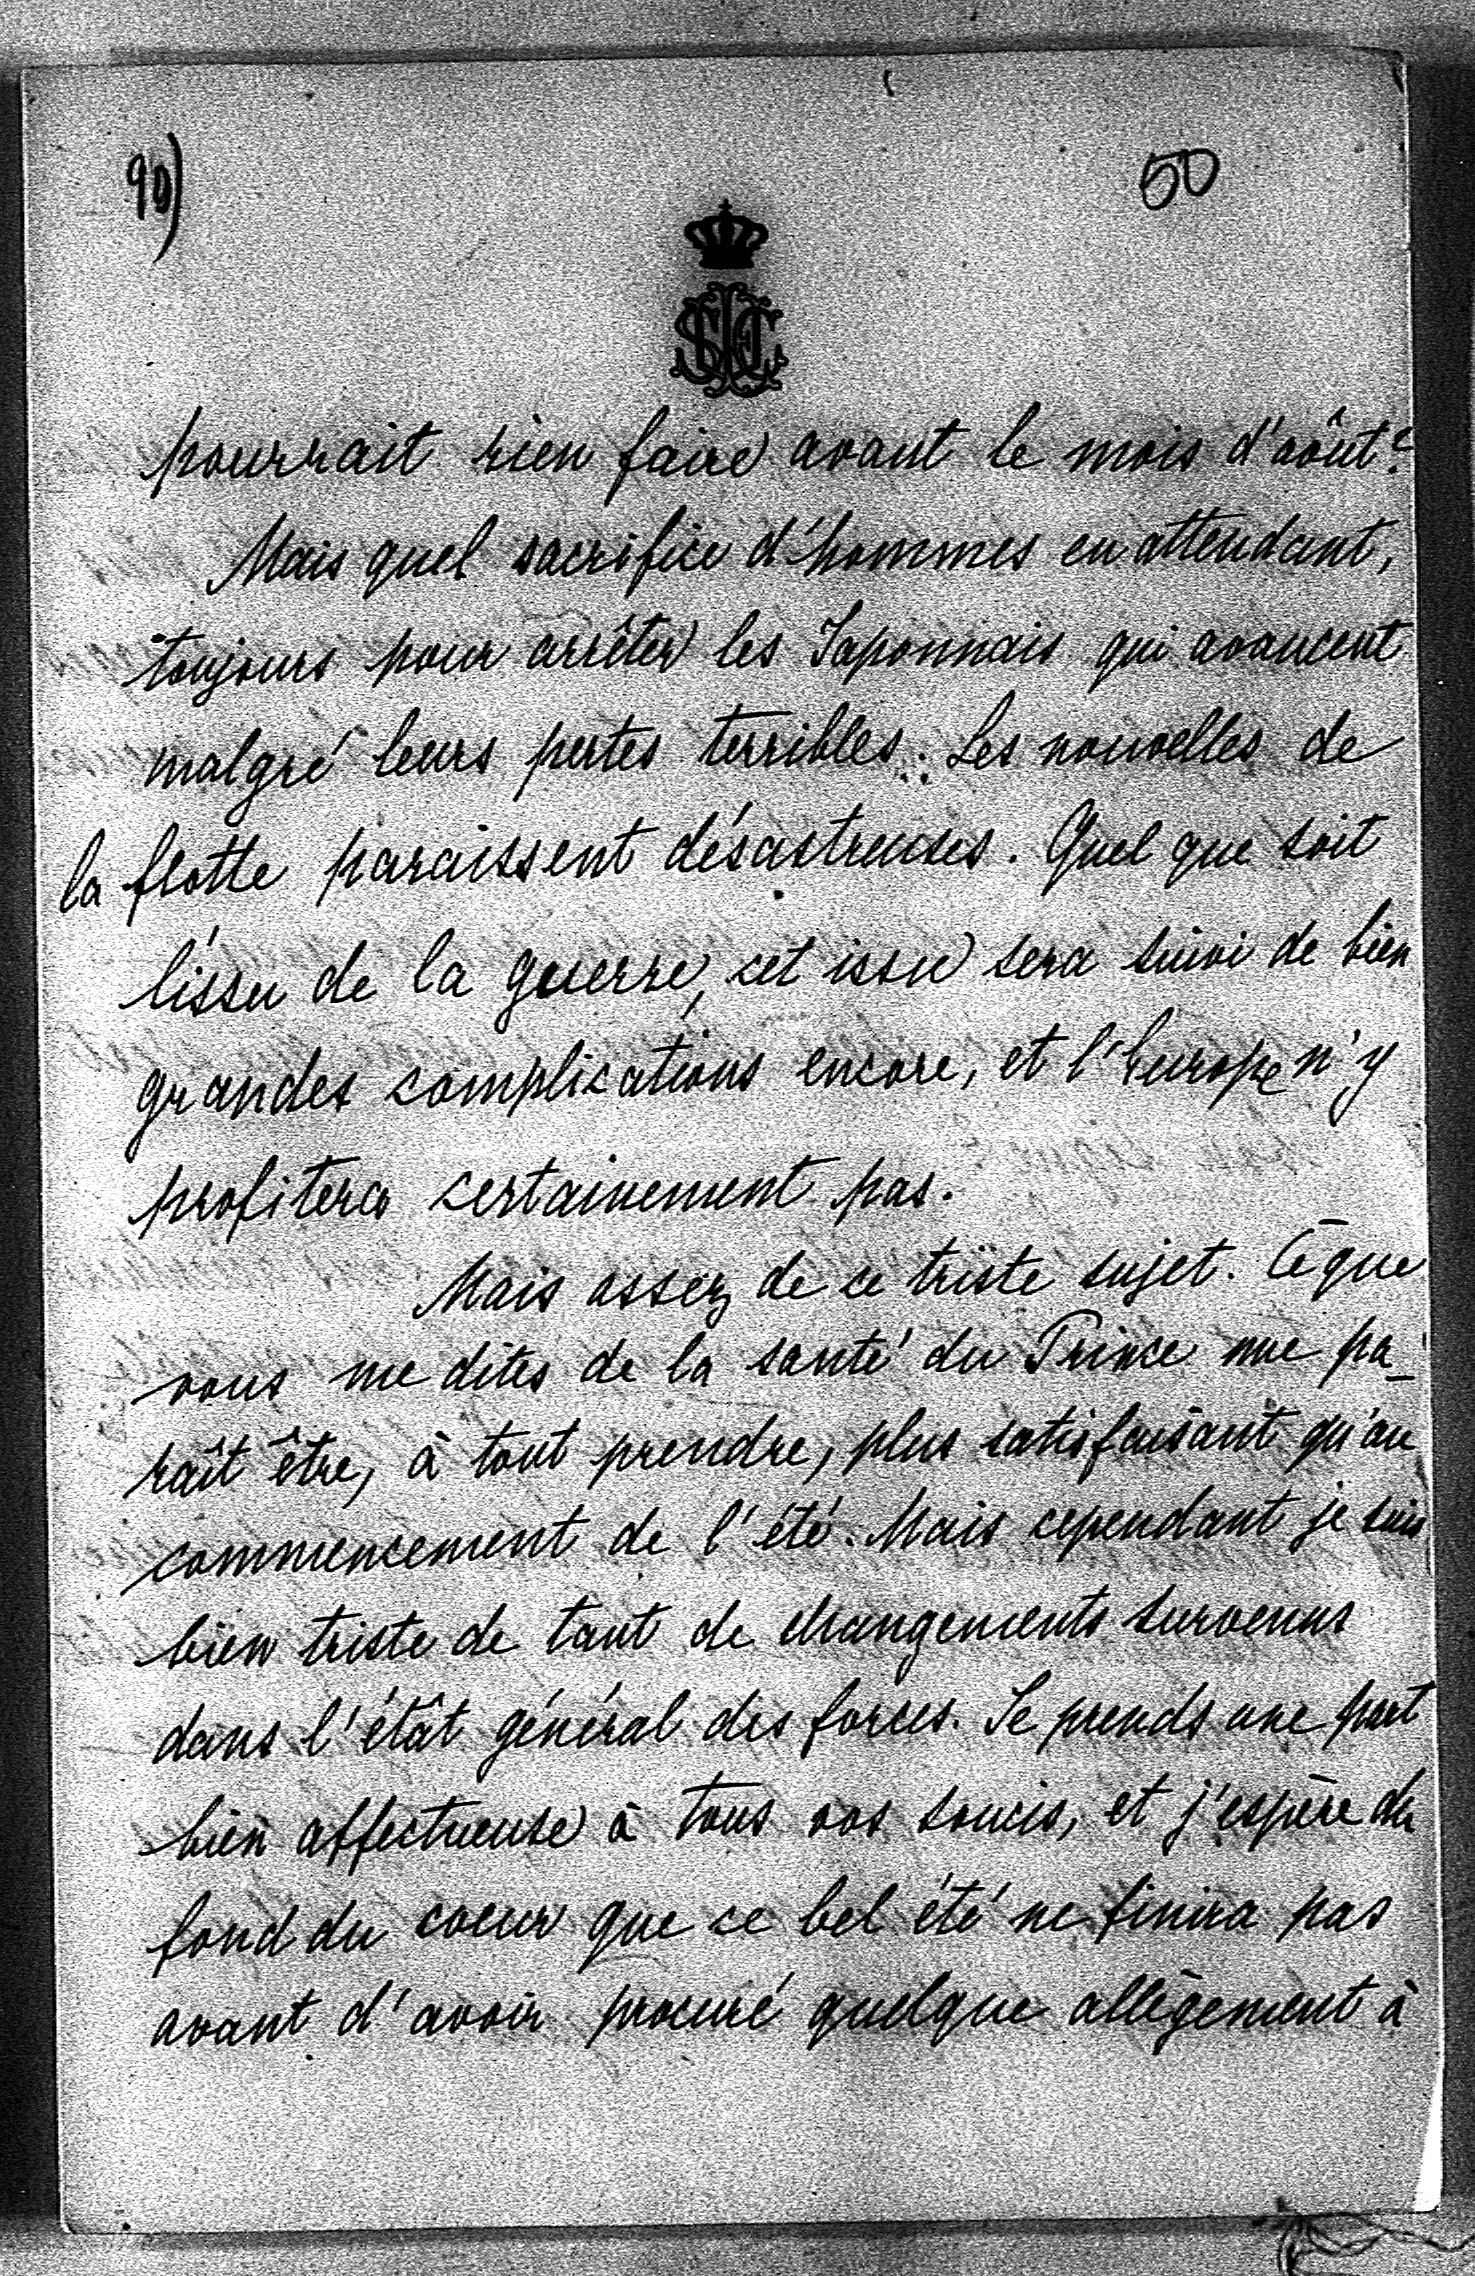 90)
50
pourrait rien faire avant le mois d'aôut?
Mais quel sacrifice d'hommes en attendant,
toujours pour arrêter les Japonnais qui avancent
malgré leurs pertes terribles... Les nouvelles de
la flotte paraissent désastreuses. Quel que soit
l'issu de la guerre, cet issu sera suivi de bien
grandes complications encore, et l'Europe n'y
profitera certainement pas.
Mais assez de ce triste sujet. Ce que
vous me dites de la santé du Prince me pa-
raît être, à tout prendre, plus satisfaisant qu'au
commencement de l'été. Mais cependant je suis
bien triste de tant de changements survenus
dans l'étât général des forces. Je prends une part
bien affectueuse à tous vos soucis, et j'espère du
fond du coeur que ce bel été ne finira pas
avant d'avoir procuré quelque allègement à